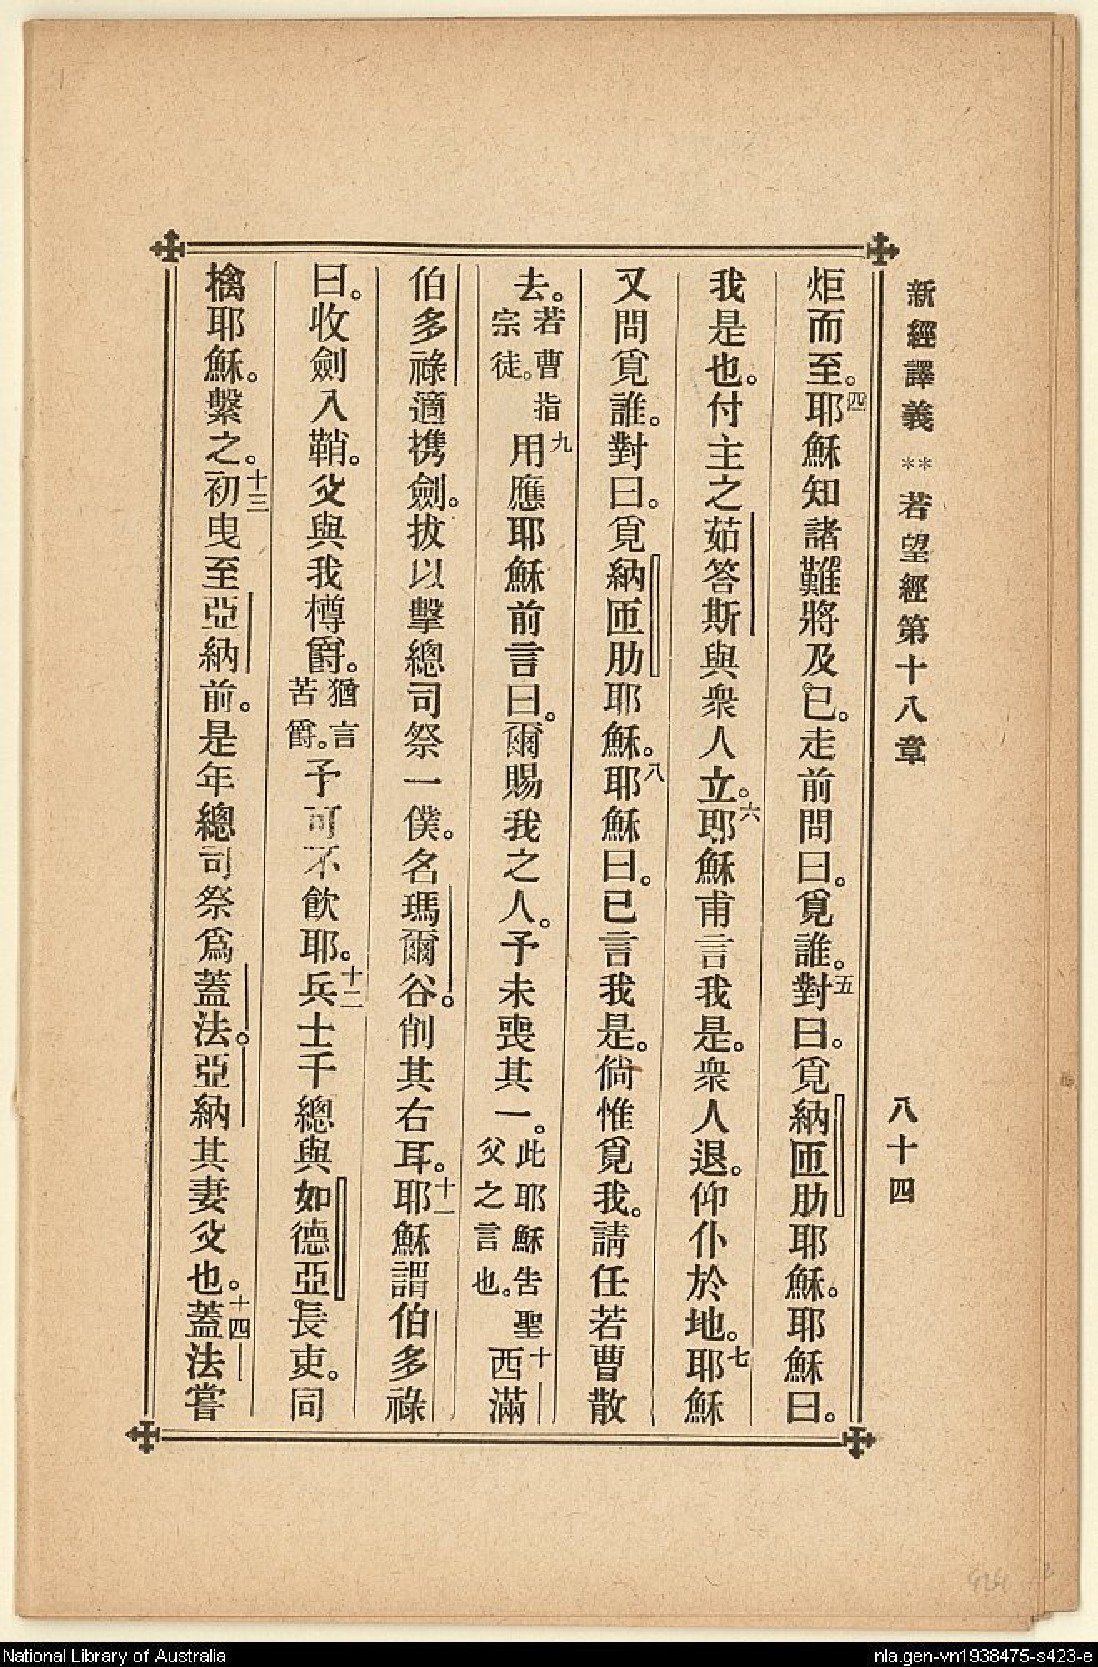 新經譯義 ** 若望經第十八章 八十四
炬而至。四耶穌知諸難將及已。走前問曰。覓誰。五對曰。覓納匝肋耶穌。耶穌曰。
我是也。付主之茹答斯與衆人立。六耶穌甫言我是。衆人退。仰仆於地。七耶穌
又問覓誰。對曰。覓納匝肋耶穌。八耶穌曰。已言我是。倘惟覓我。請任若曹散
去。若曹指宗徒。九用應耶穌前言曰。爾賜我之人。予未喪其一。此耶穌告聖父之言也。十西滿
伯多祿適携劍。拔以擊總司祭一僕。名瑪爾谷。削其右耳。十一耶穌謂伯多祿
曰。收劍入鞘。父與我樽爵。猶言苦爵。予可不飲耶。十二兵士千總與如德亞長吏。同
擒耶穌。繫之。十三初曳至亞納前。是年總司祭爲蓋法。亞納其妻父也。十四蓋法嘗
National Library of Australia
nla.gen-vn1938475-s423-e